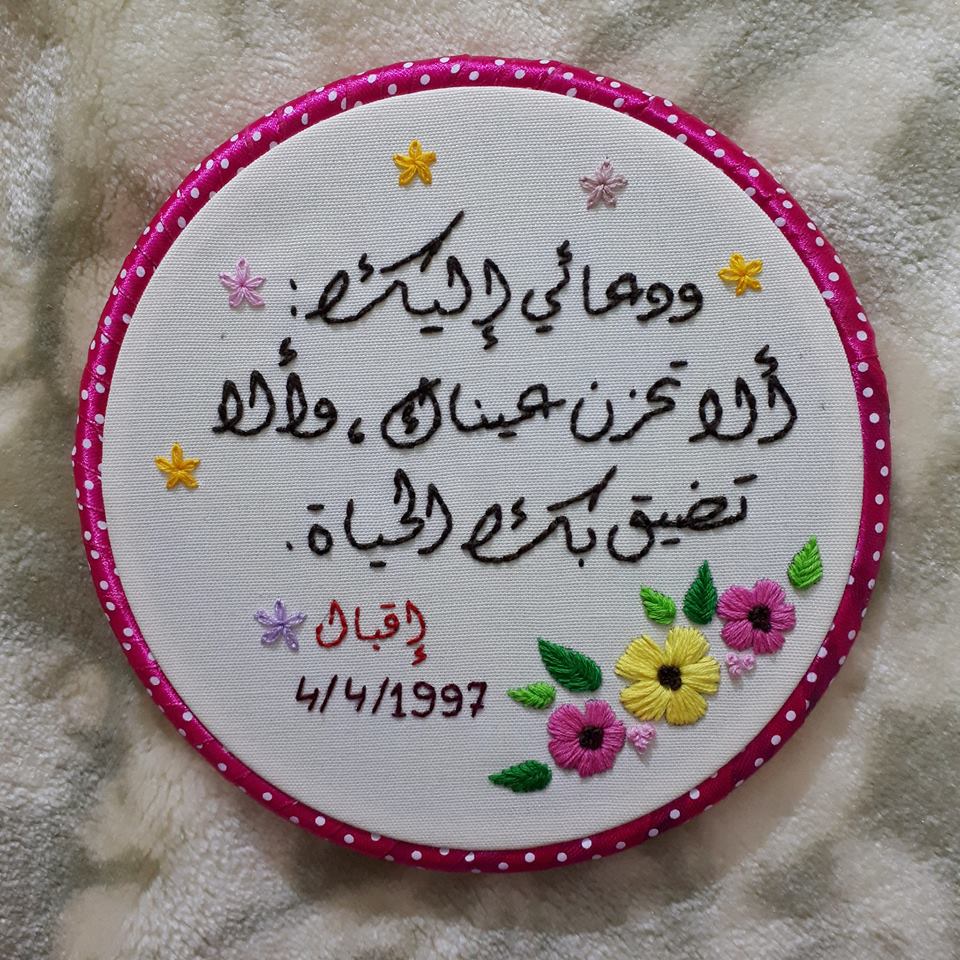 ودعائي إليك:
ألا تحزن عيناك، وألا
تضيق بك الحياة.
إقبال
4/4/1997